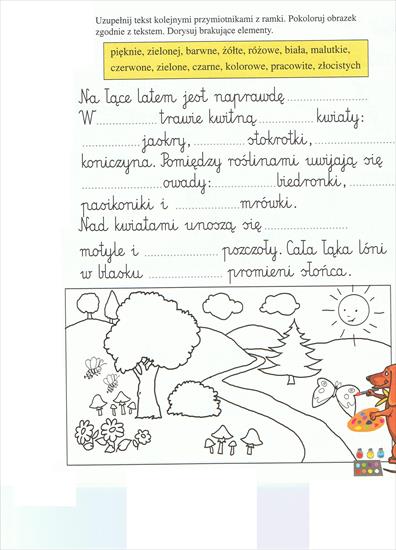 Uzupełnij tekst kolejnymi przymiotnikami z ramki. Pokoloruj obrazek
zgodnie z tekstem. Dorysuj brakujące elementy.
pięknie, zielonej, barwne, żółte, różowe, biała, malutkie,
czerwone, zielone, czarne, kolorowe, pracowite, złocistych
Na łące latem jest naprawdę ....................
W .................... trawie kwitną .................... kwiaty:
.................... jaskry, .................... stokrotki, ....................
koniczyna. Pomiędzy roślinami uwijają się
.................... owady: .................... biedronki, ....................
pasikoniki i .................... mrówki.
Nad kwiatami unoszą się ....................
motyle i .................... pszczoły. Cała łąka lśni
w blasku .................... promieni słońca.